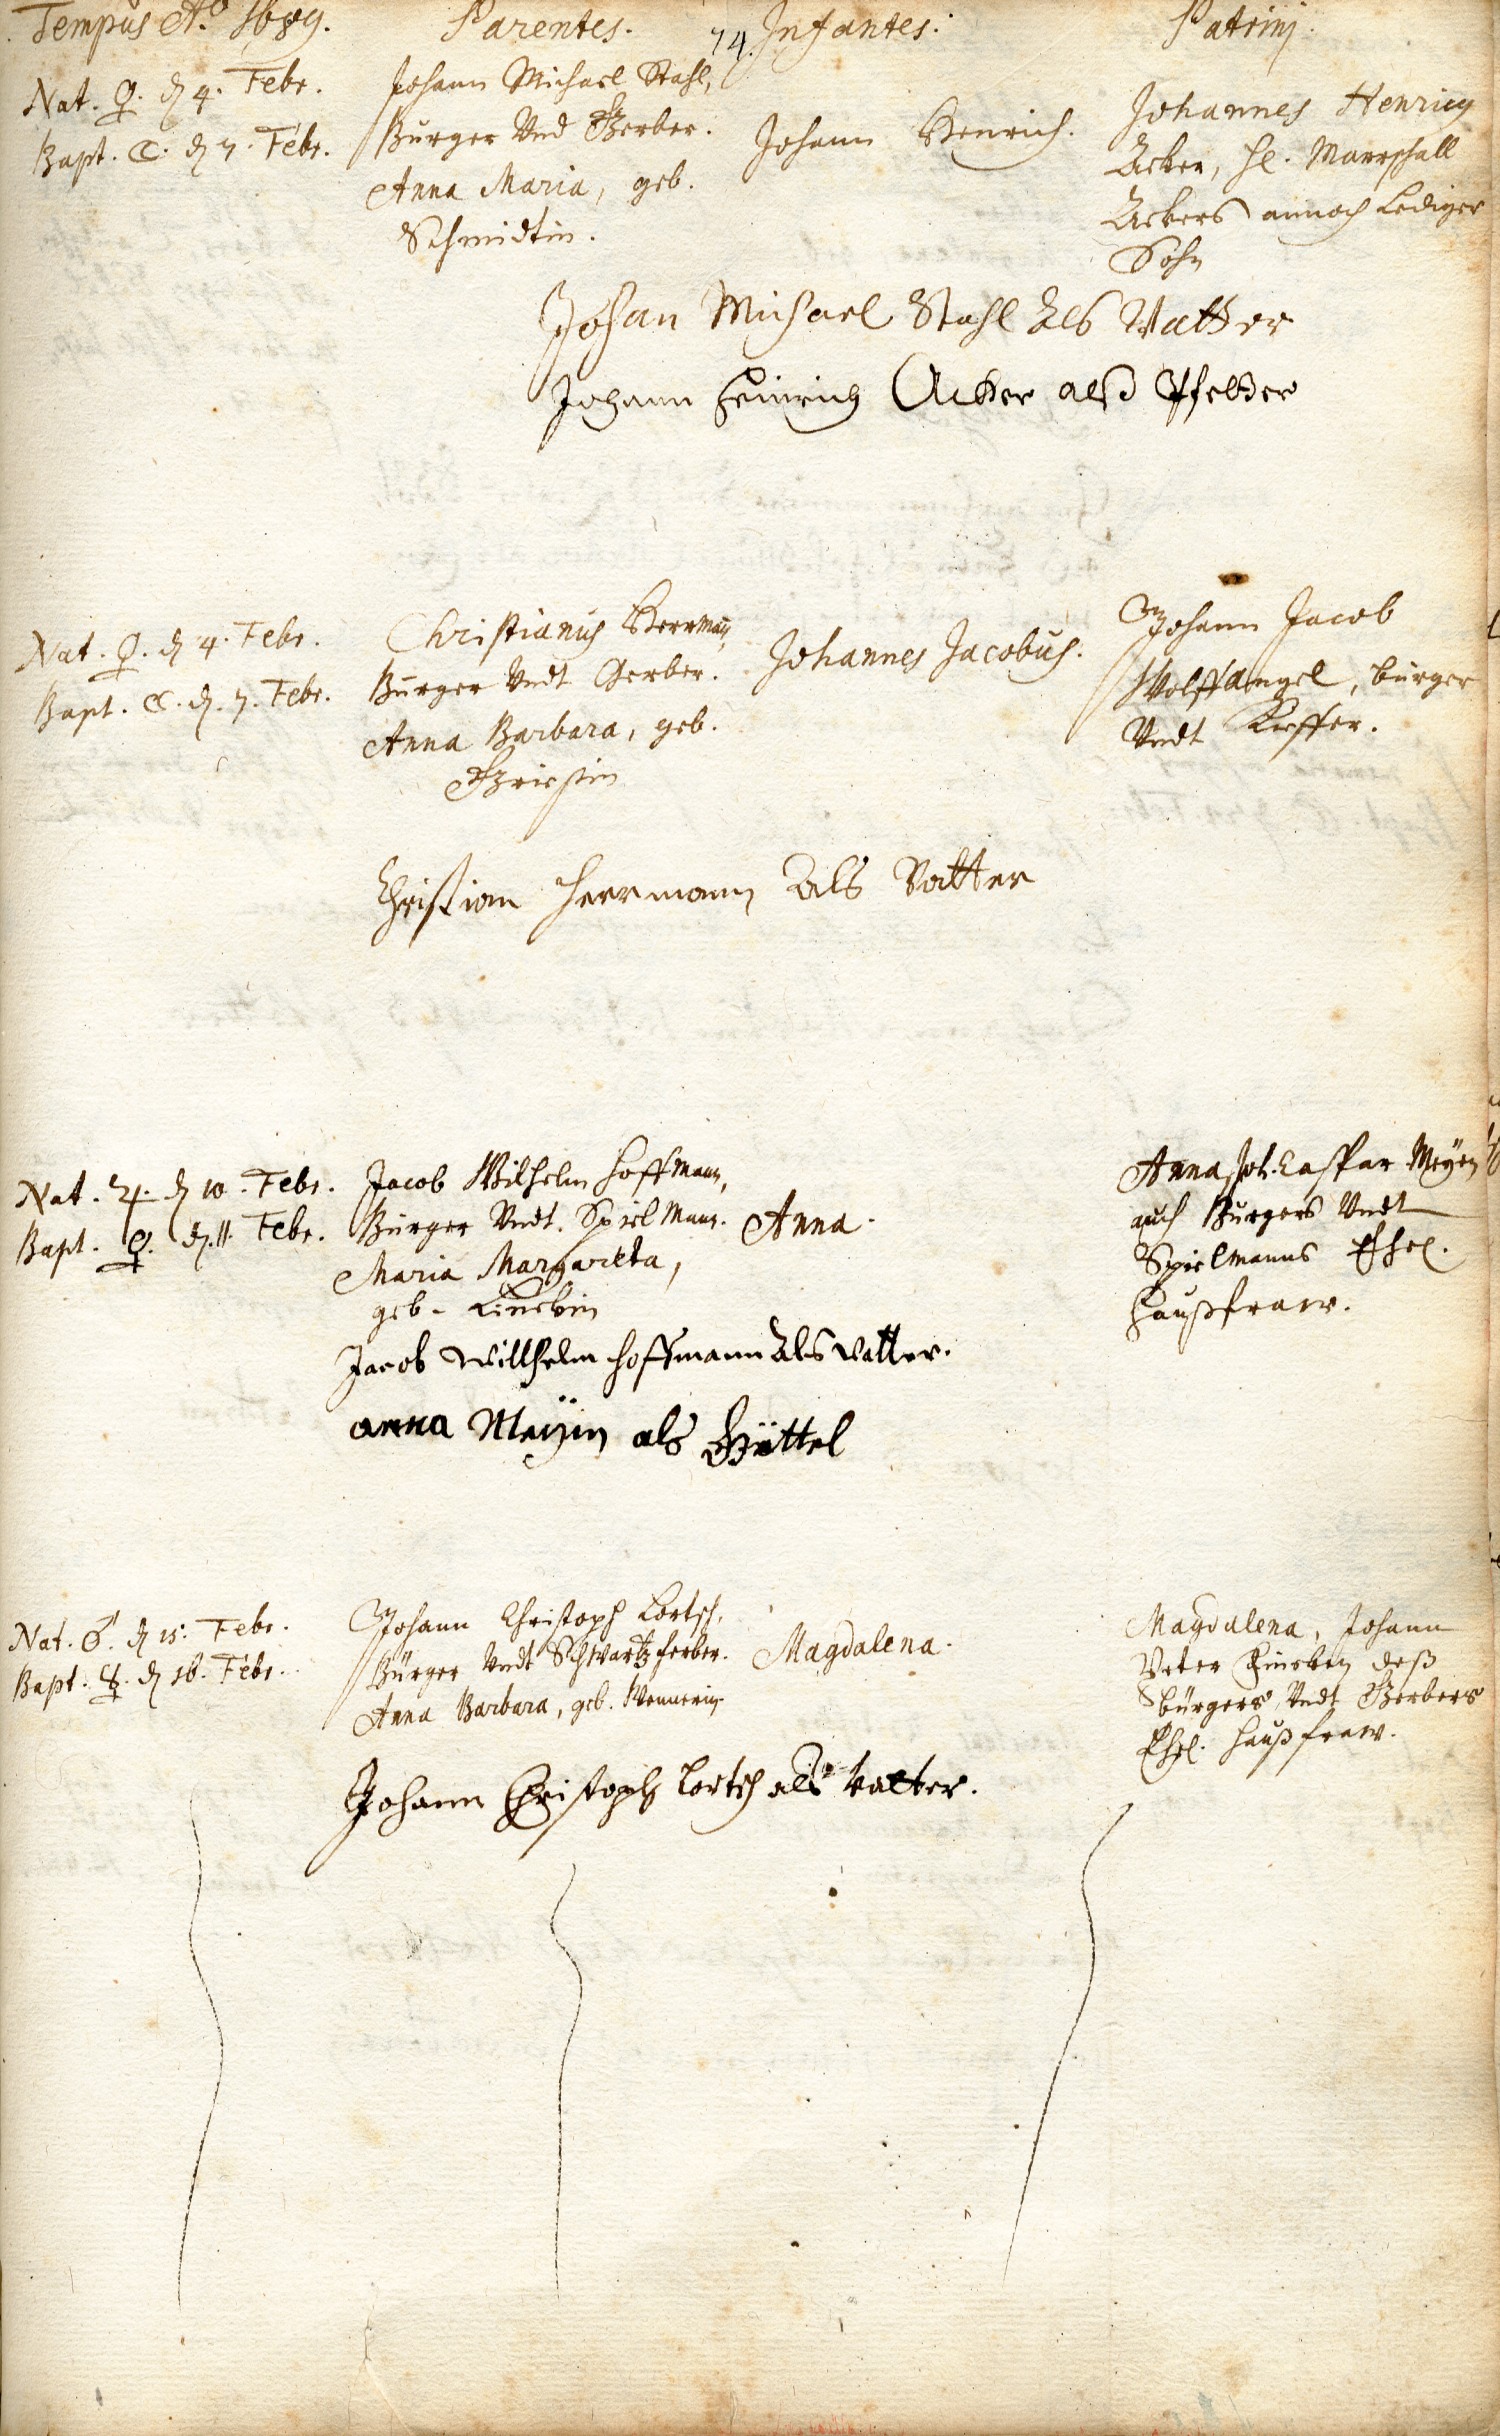 Tempus Aō 1689. Parentes. 74. Infantes. Patrini.
Nat. ♀. d 4. Febr.
Bapt. ☾. d 7. Febr.
Johann Michael Stahl,
Burger Vnd Gerber.
Anna Maria, geb.
Schmidtin.
Johann Henrich.
Johannes Henricus
Acker, H. Marschall
Ackers annoch Lediger
Sohn
Johan Michael Stahl Als Vatter
Johann Heinrich Acker alß Pfetter
Nat. ♀. d 4. Febr.
Bapt. ☾. d. 7. Febr.
Christianus Herrmann,
Burger Vndt Gerber.
Anna Barbara, geb.
Johannes Jacobus.
Johann Jacob
Wolffangel, burger
Vndt Kieffer.
Christian Herrmann Als Vatter
Nat. ♃. d 10. Febr.
Bapt. ♀. d. 11. Febr.
Jacob Wilhelm Hoffmann,
Burger Vndt. Spielmann.
Maria Margareta,
geb.
Anna.
Anna Joh. Caspar Meyen
auch Burgers Vndt
Spielmanns Ehel.
Haußfraw.
Jacob Willhelm Hoffmann Als Vatter.
anna Meÿin als Göttel
Nat. ♂. d 15. Febr.
Bapt. ☿. d 16. Febr.
Johann Christoph Lortsch,
Bürger Vndt Schwartzferber.
Anna Barbara, geb. Wennerin
Magdalena.
Magdalena, Johann
Peter deß
bürgers Vndt Gerbers
Ehel. Haußfraw.
Johann Christoph Lortsch als Vatter.